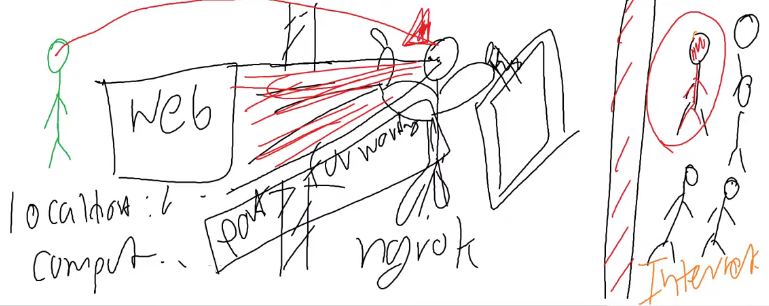 web
localhost:
comput..
port forwarding
ngrok
Internet